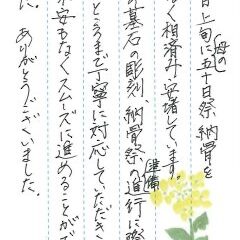 日上旬に母の五十日祭、納骨を
なく相済み安堵しています。
の墓石の彫刻、納骨祭の準備進行に際
とうまで丁寧に対応していただき
不安もなくスムーズに進めることがで
た。ありがとうございました。